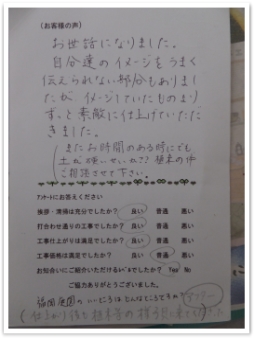 (お客様の声)
お世話になりました。
自分達のイメージをうまく
伝えられない部分もありまし
たが イメージしていたものより
ずっと素敵に仕上げていただ
きました。
またお時間のある時にでも
ご相談させて下さい。
アンケートにお答えください
挨拶・清掃は充分でしたか? 良い 普通 悪い
打合わせ通りの工事でしたか? 良い 普通 悪い
工事仕上がりは満足でしたか? 良い 普通 悪い
工事価格は満足でしたか? 良い 普通 悪い
お知合いにご紹介いただけるレベルですか? Yes No
ご協力ありがとうございました。